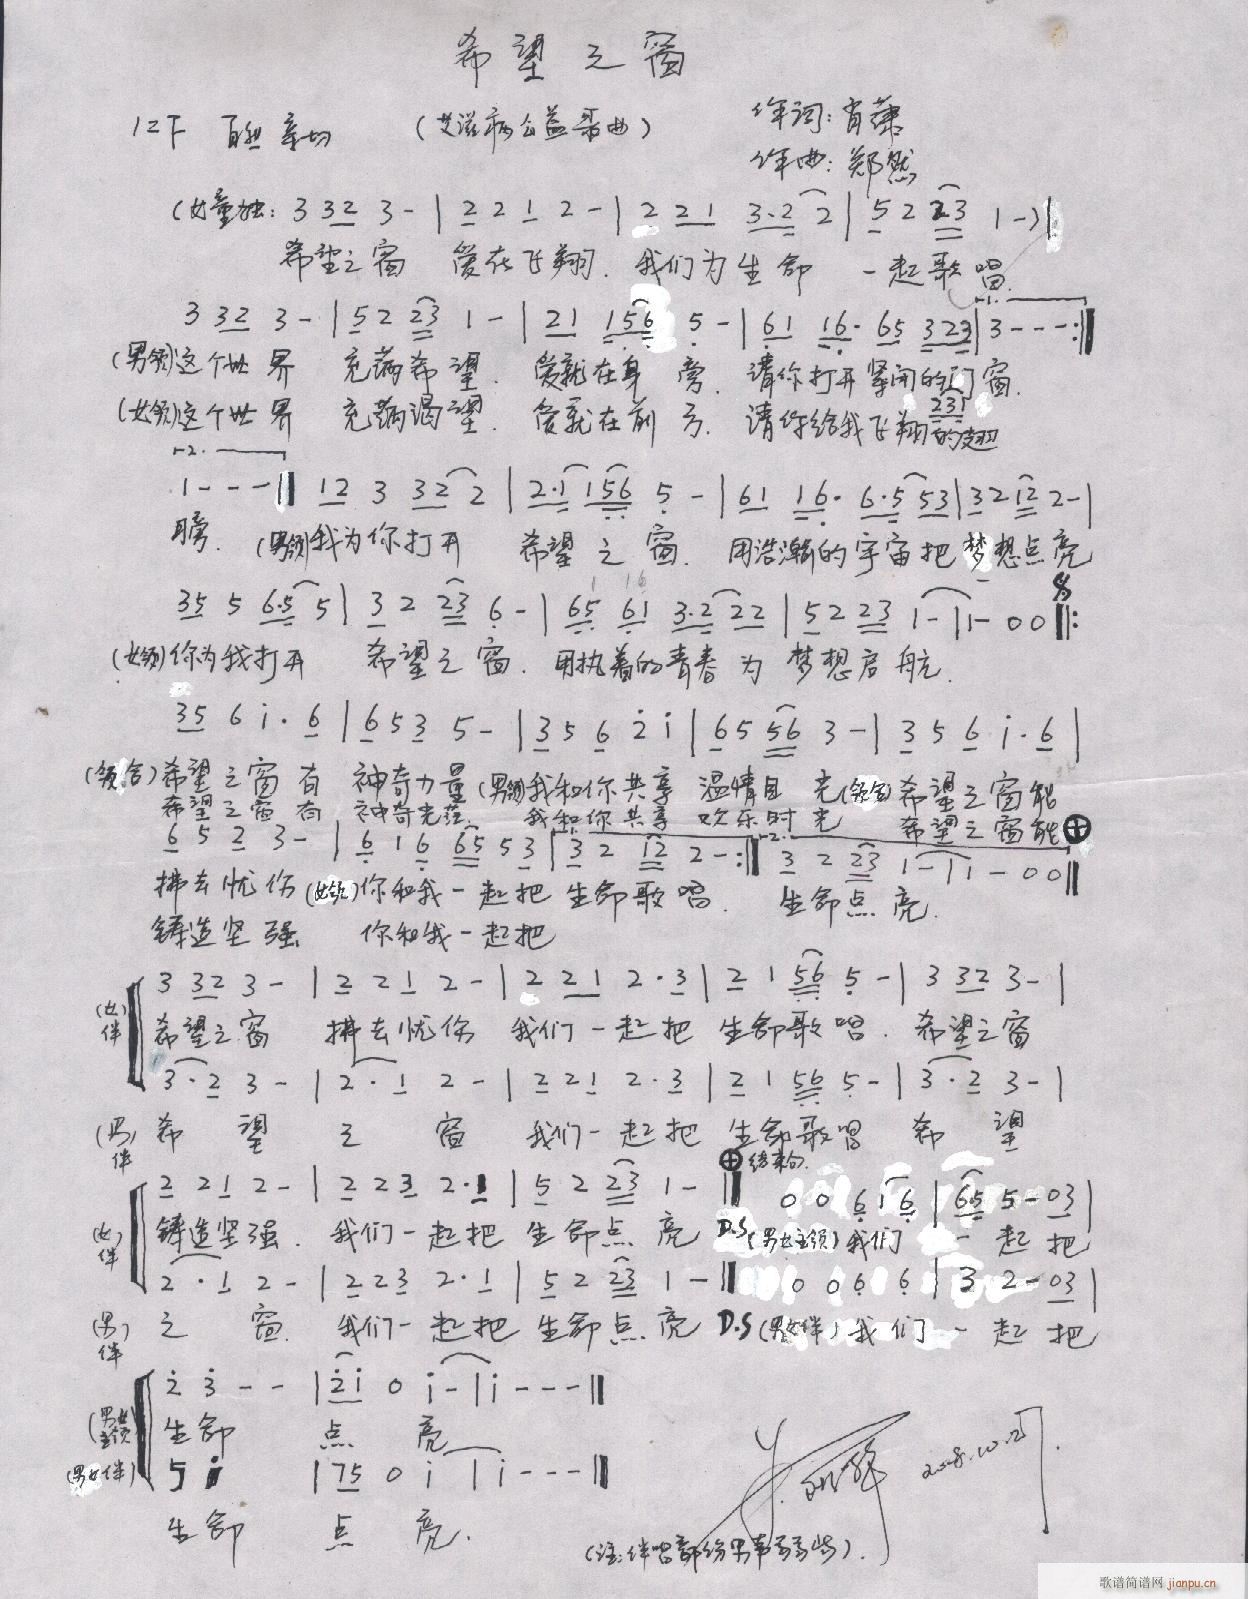 希望之窗
(艾滋病公益歌曲)
作词：肖萧
作曲：郑然
(女童独： 3 32 3 - | 2 2 1 2 - | 2 2 1 3·2 2 | 5 2 23 1 - )
希望之窗 爱在飞翔. 我们为生命 一起歌唱.
3 32 3 - | 5 2 23 1 - | 21 156 5 - | 61 16· 65 323 | 3 - - - :||
(男领)这个世界 充满希望. 爱就在身旁. 请你打开紧闭的门窗.
231
(女领)这个世界 充满渴望. 爱就在前方. 请你给我飞翔的翅
1 - - - || 12 3 32 2 | 2·1 156 5 - | 61 16· 6·5 53 | 3 2 12 2 - |
膀. (男领)我为你打开 希望之窗. 用浩瀚的宇宙把梦想点亮
35 5 6·5 5 | 3 2 23 6 - | 65 61 3·2 22 | 5 2 23 1 - | 1 - 0 0 ||:
(女领)你为我打开 希望之窗. 用执着的青春为梦想启航.
35 6 i· 6 | 6 5 3 5 - | 3 5 6 2 i | 6 5 56 3 - | 3 5 6 i· 6 |
(领合)希望之窗有 神奇力量 (男领)我和你共享 温情目光(领合)希望之窗能
希望之窗有 神奇光莅. 我和你共享 欢乐时光 希望之窗能
6 5 2 3 - | 6 1 6 65 5 3 | 3 2 12 2 - :|| 3 2 23 1 - | 1 - 0 0 ||
拂去忧伤 (女领)你和我一起把 生命歌唱. 生命点亮.
铸造坚强 你和我一起把
3 32 3 - | 2 2 1 2 - | 2 2 1 2· 3 | 2 1 56 5 - | 3 32 3 - |
(女)伴 希望之窗 拂去忧伤 我们一起把 生命歌唱. 希望之窗
3·2 3 - | 2·1 2 - | 2 2 1 2· 3 | 2 1 56 5 - | 3·2 3 - |
(男)伴 希望之窗 我们一起把 生命歌唱 希望
结束句.
2 2 1 2 - | 2 2 3 2· 1 | 5 2 23 1 - || 0 0 6 1 6 | 65 5 - 03 |
(女)伴 铸造坚强. 我们一起把 生命点亮 D.S (男女主领)我们一起把
2·1 2 - | 2 2 3 2· 1 | 5 2 23 1 - || 0 0 6 6 | 3 2 - 03 |
(男)伴 之窗. 我们一起把 生命点亮 D.S (男女伴)我们一起把
2 3 - - | 2i 0 i - | i - - - ||
(男女主领) 生命点亮
(男女伴) 5 i | 75 0 i | i - - - ||
生命点亮.
2008.10.2
(注:伴唱部份
歌谱简谱网 jianpu.cn